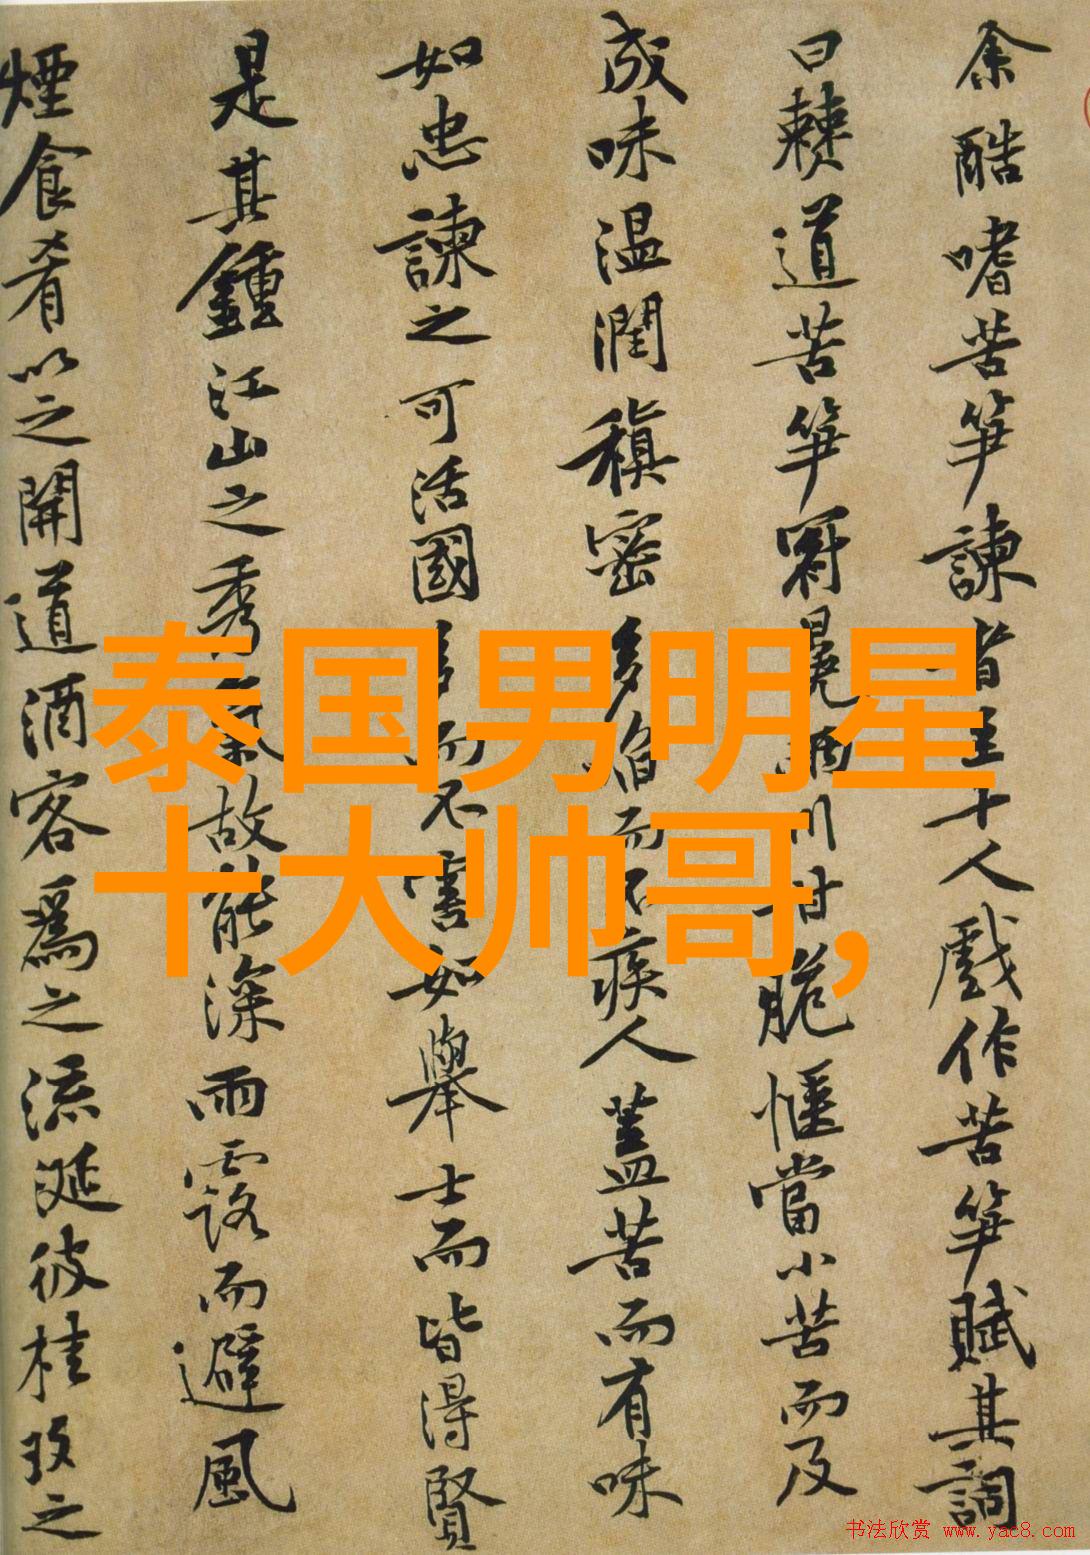 余酷嗜苦笋諫者至十人戲作苦笋賦其詞
曰僰道苦笋冠冕兩川甘脆愜當小苦而及
成味温潤稹密多啗而不疾人蓋苦而有味
如忠諫之可活國多而不害如舉士而皆得賢
是其鍾江山之秀氣故能深雨露而避風
煙食肴以之開道酒客爲之流涎彼桂玫之
泰国男明星
十大帅哥,
书法欣赏 www.yac8.com